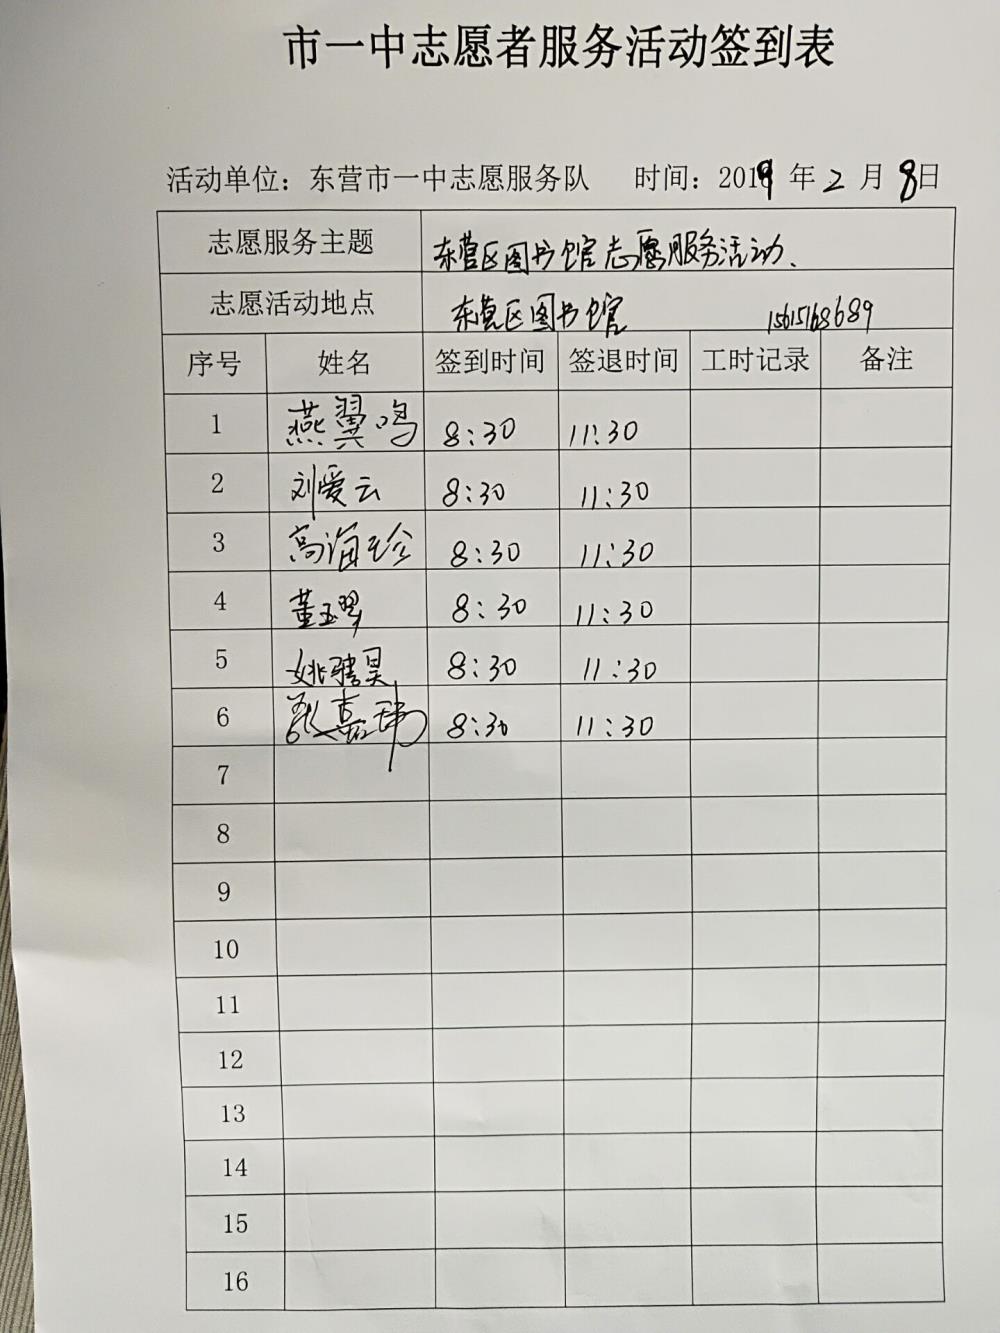 市一中志愿者服务活动签到表
活动单位：东营市一中志愿服务队 时间：2019 年 2 月 8日
志愿服务主题 东营区图书馆志愿服务活动、
志愿活动地点 东营区图书馆 15615168689
序号 姓名 签到时间 签退时间 工时记录 备注
1 燕翼鸣 8:30 11:30
2 刘爱云 8:30 11:30
3 高海珍 8:30 11:30
4 董玉琴 8:30 11:30
5 姚骋昊 8:30 11:30
6 张嘉玮 8:30 11:30
7
8
9
10
11
12
13
14
15
16